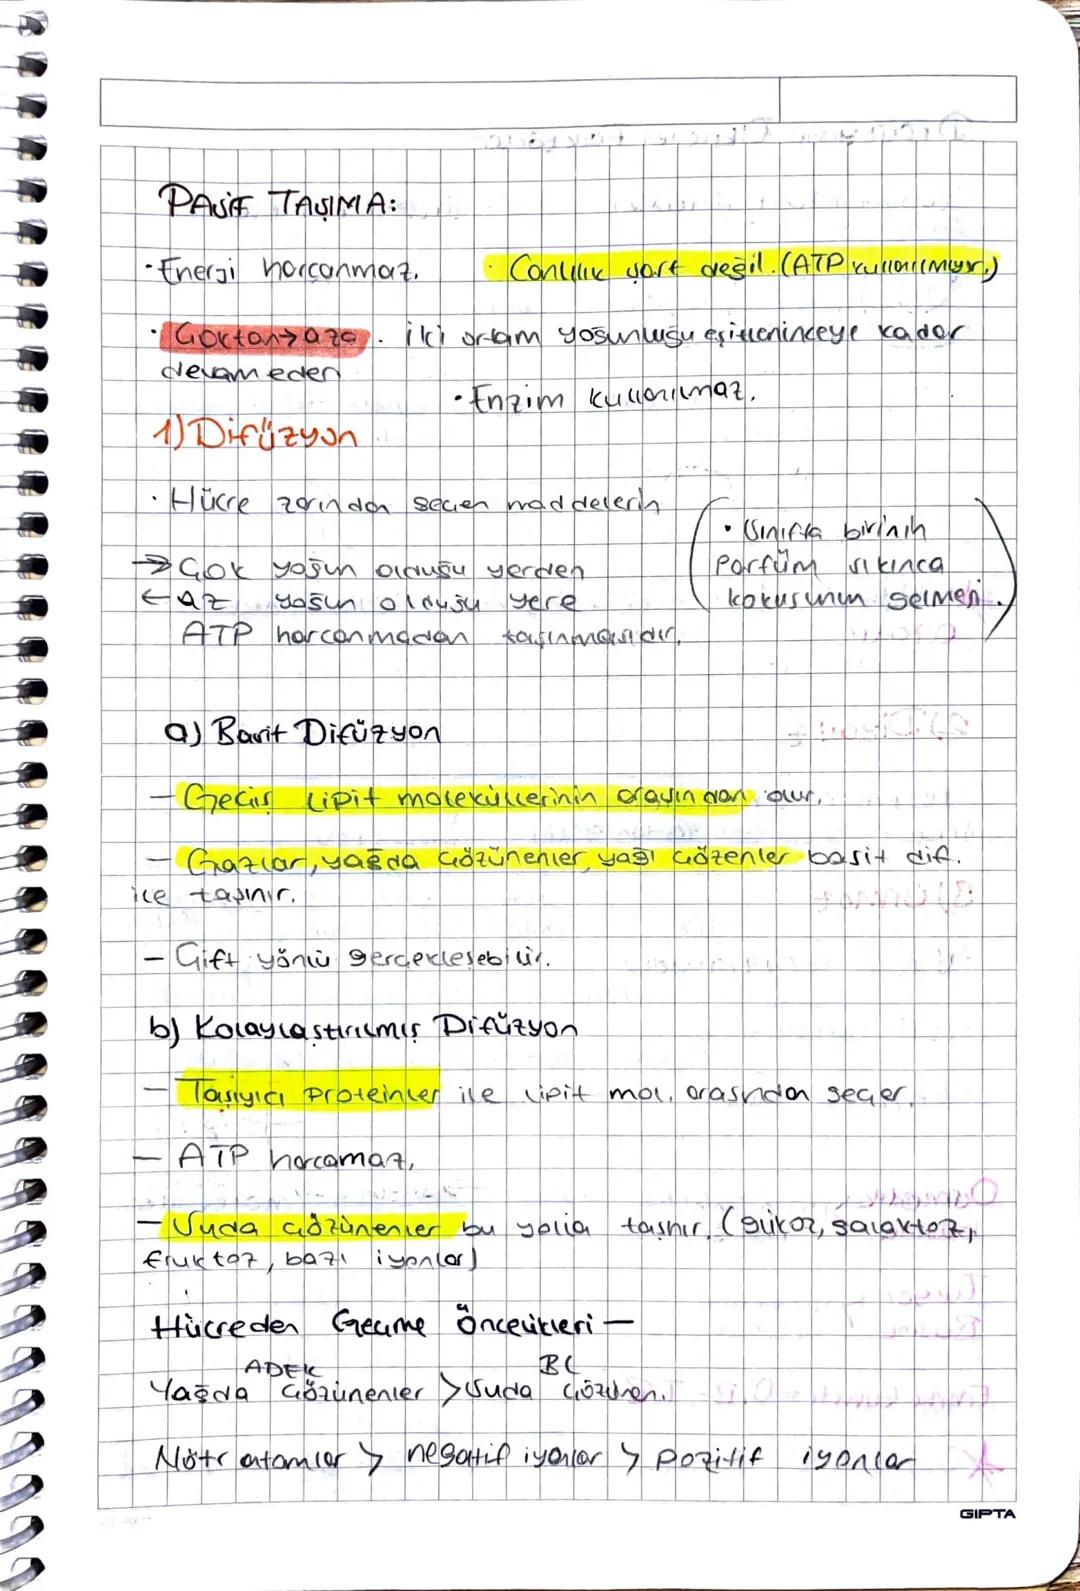 PASİF TAŞIMA:
· Enerji harcanmaz.   · Canlılık şart değil. (ATP kullanılmıyor.)
· Çoktan → aza. iki ortam yoğunluğu eşitleninceye kadar
devam eden
· Enzim kullanılmaz.
1) Difüzyon
· Hücre zarından geçen maddelerin
→ Çok yoğun olduğu yerden
← az yoğun olduğu yere
ATP harcanmadan taşınmasıdır.
(· Sınıfta birinin
Parfüm sıkınca
kokusunun gelmesi.)
a) Basit Difüzyon
— Geçiş lipit moleküllerinin arasından olur.
— Gazlar, yağda çözünenler, yağı çözenler basit dif.
ile taşınır.
— Çift yönlü gerçekleşebilir.
b) Kolaylaştırılmış Difüzyon
— Taşıyıcı Proteinler ile lipit mol. arasından geçer.
— ATP harcamaz.
— Suda çözünenler bu yolla taşınır. (glikoz, galaktoz,
fruktoz, bazı iyonlar)
Hücreden Geçme Öncelikleri —
ADEK   BC
Yağda Çözünenler > Suda Çözünen.
Nötr atomlar > negatif iyonlar > pozitif iyonlar
GIPTA